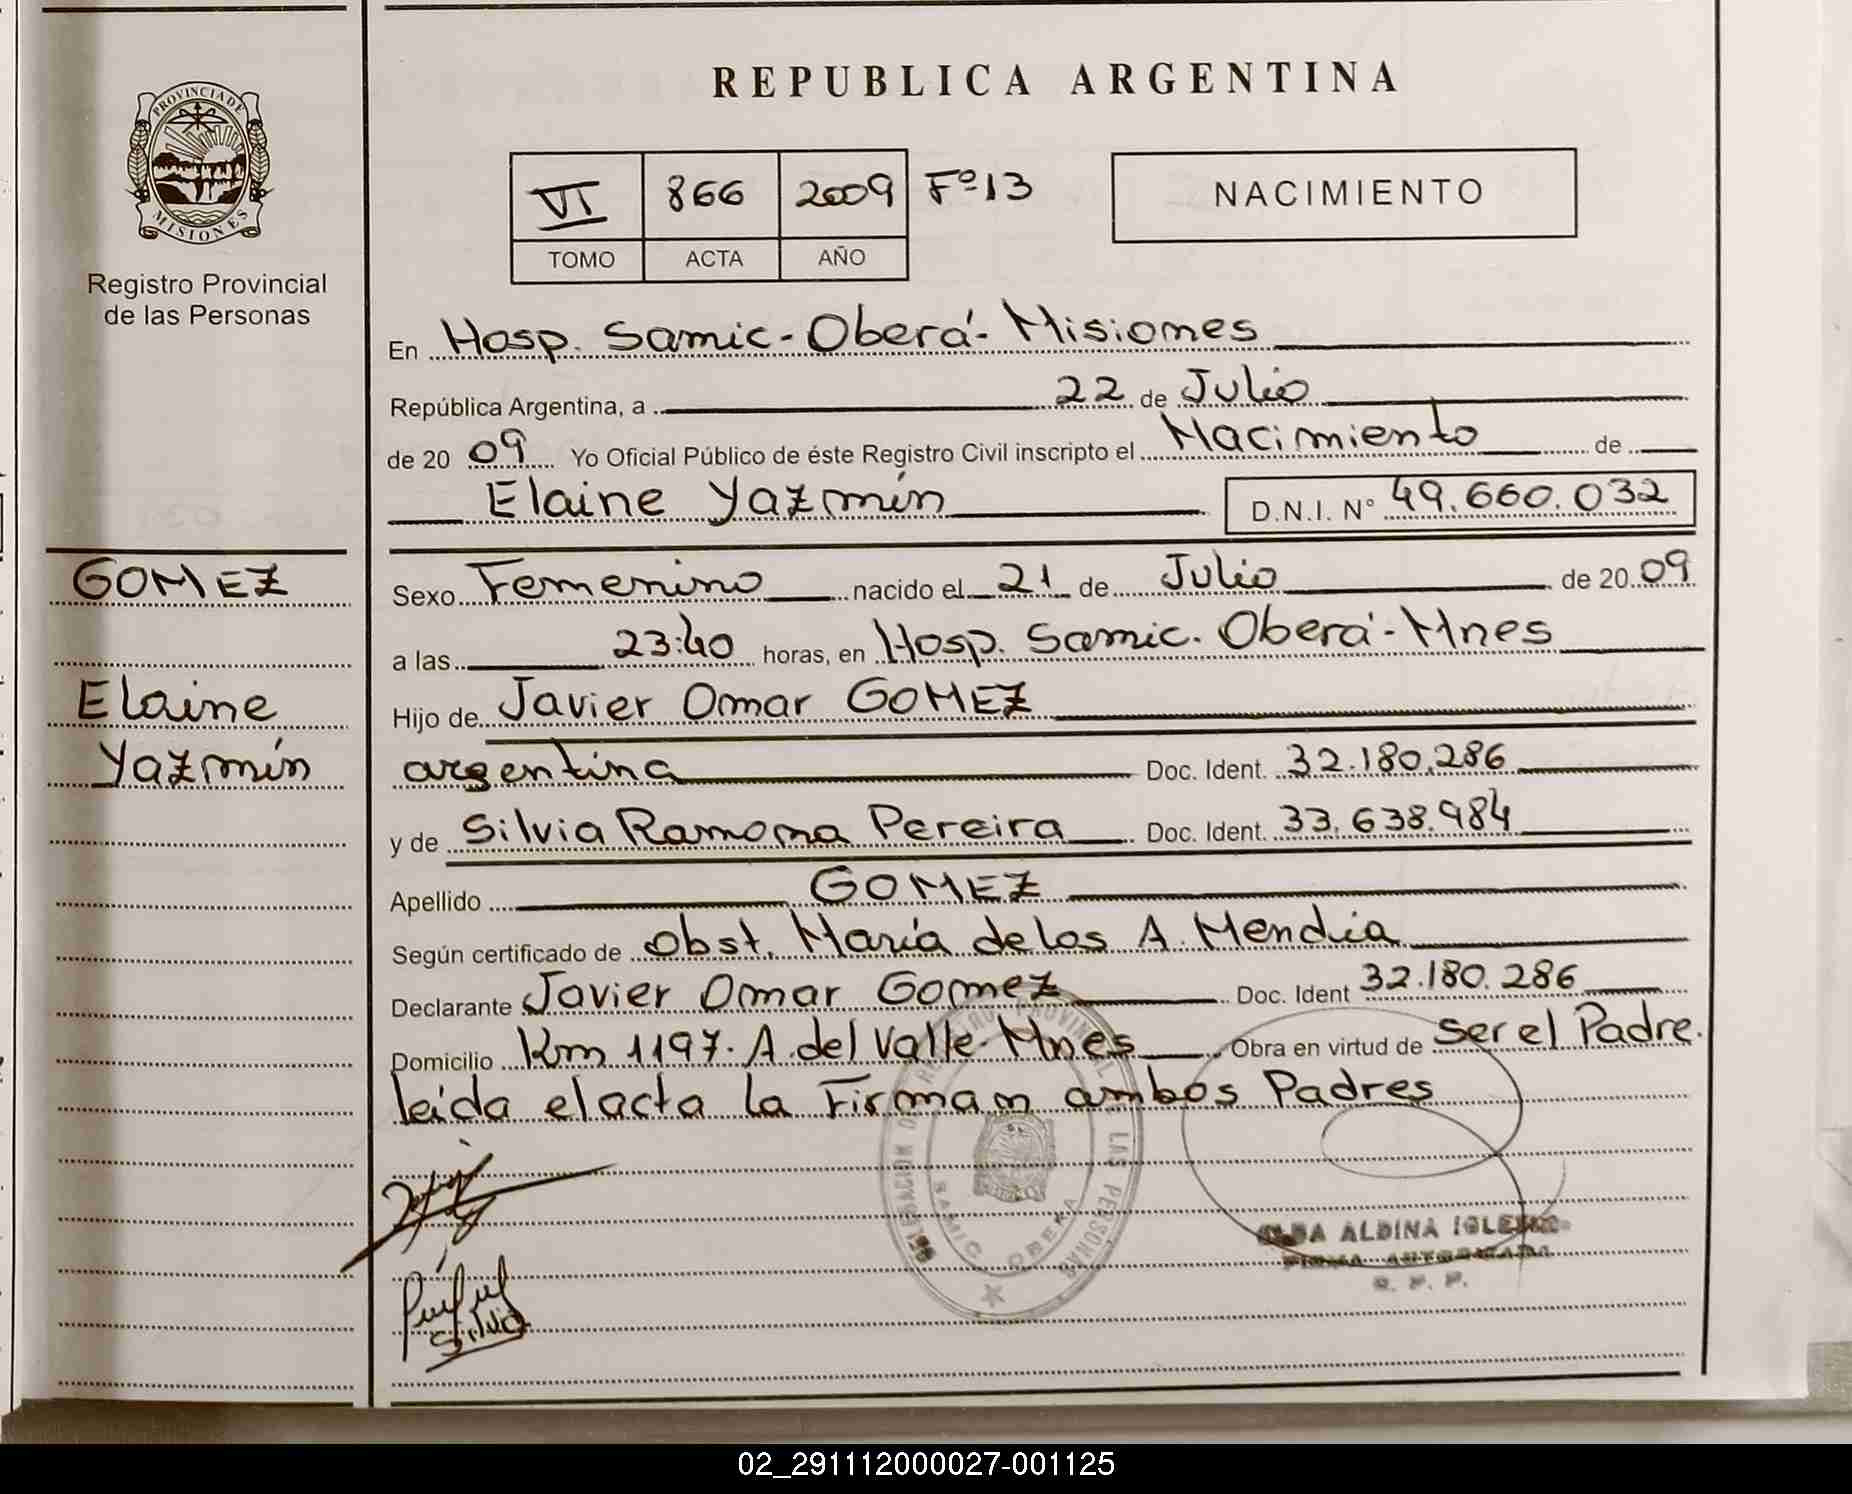 REPUBLICA ARGENTINA
PROVINCIA DE
MISIONES
Registro Provincial
de las Personas
VI 866 2009 Fº13
TOMO ACTA AÑO
NACIMIENTO
En Hosp. Samic-Oberá-Misiones
República Argentina, a 22 de Julio
de 2009 Yo Oficial Público de éste Registro Civil inscripto el Nacimiento de
Elaine Yazmín D.N.I. N° 49.660.032
GOMEZ
Elaine
Yazmín
Sexo Femenino nacido el 21 de Julio de 2009
a las 23:40 horas, en Hosp. Samic. Oberá-Mnes
Hijo de Javier Omar GOMEZ
argentina Doc. Ident. 32.180.286
y de Silvia Ramona Pereira Doc. Ident. 33.638.984
Apellido GOMEZ
Según certificado de Obst. María de los A. Mendia
Declarante Javier Omar Gomez Doc. Ident 32.180.286
Domicilio Km 1197. A. del Valle-Mnes Obra en virtud de ser el Padre.
leída el acta la Firman ambos Padres
Silvia
DELEGACION DEL REGISTRO PROVINCIAL DE LAS PERSONAS
SAMIC OBERA
ALDINA
FIRMA AUTORIZADA
R. P. P.
02_291112000027-001125